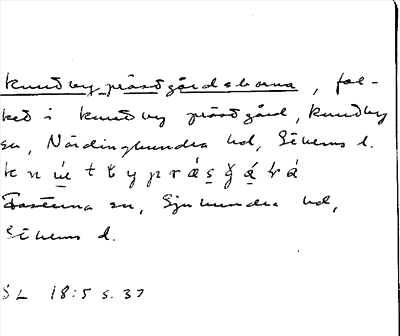 Knutby prästgårdsborna, fol-
ket i Knutby prästgård, Knutby
sn, Närdinghundra hd, Sthlms l.
k n u̱̍ t t y p r á s̱ ğ á̱ r á
Fasterna sn, Sjuhundra hd,
Sthlms l.
SL 18:5 s. 37